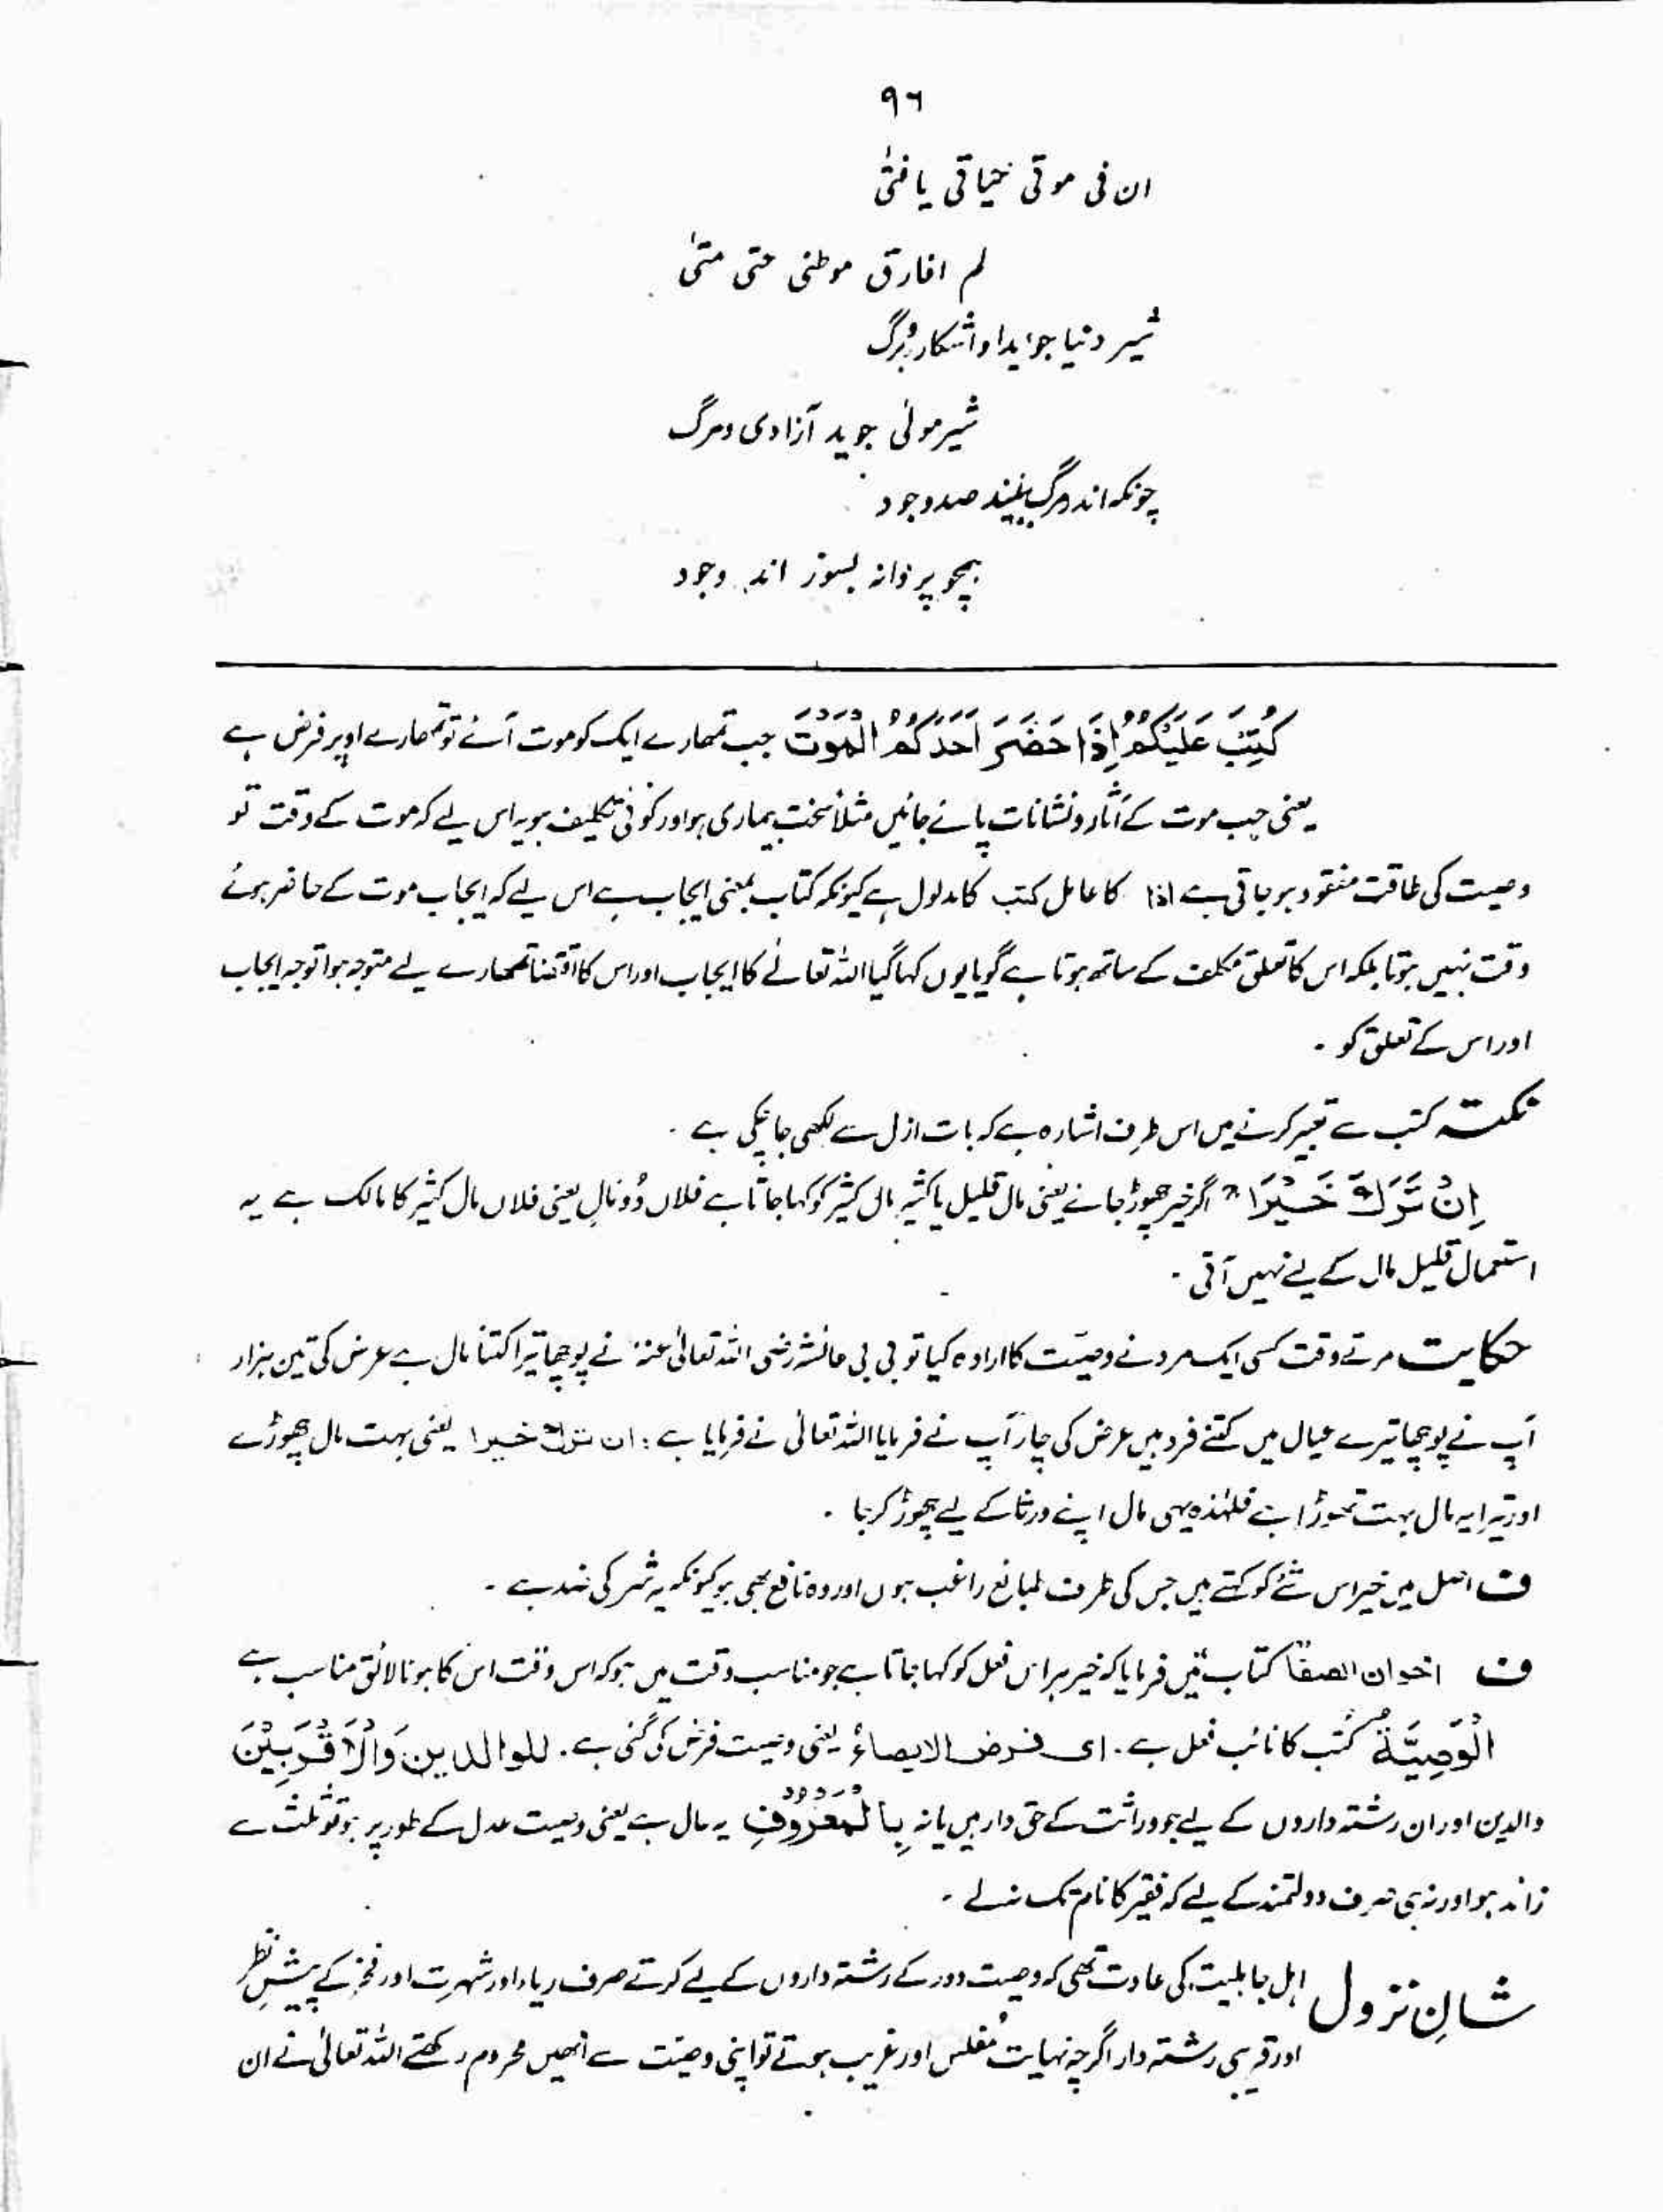 ٩٦
ان فی موتی حیاتی یا فتیٰ
لم افارق موطنی حتی متیٰ
شیر دنیا جوید اواشکار و برگ
شیر مولیٰ جوید آزادی و مرگ
چونکہ اندر مرگ بیند صد وجود
ہمچو پروانہ بسوز اند وجود
كُتِبَ عَلَيْكُمْ اِذَا حَضَرَ اَحَدَكُمُ الْمَوْتُ جب تمھارے ایک کو موت آئے تو تمھارے اوپر فرض ہے
یعنی جب موت کے آثار و نشانات پائے جائیں مثلاً سخت بیماری ہو اور کوئی تکلیف ہو یہ اس لیے کہ موت کے وقت تو
وصیت کی طاقت مفقود ہو جاتی ہے اذا کا عامل کتب کا مدلول ہے کیونکہ کتاب بمعنی ایجاب ہے اس لیے کہ ایجاب موت کے حاضر ہونے
وقت نہیں ہوتا بلکہ اس کا تعلق مکلف کے ساتھ ہوتا ہے گویا یوں کہا گیا اللہ تعالےٰ کا ایجاب اور اس کا اقتضا تمھارے لیے متوجہ ہوا توجہ ایجاب
اور اس کے تعلق کو ۔
نکتہ کتب سے تعبیر کرنے میں اس طرف اشارہ ہے کہ بات ازل سے لکھی جا چکی ہے ۔
اِنْ تَرَكَ خَيْرًا اگر خیر چھوڑ جائے یعنی مال قلیل یا کثیر مال کثیر کو کہا جاتا ہے فلاں ذُو مالٍ یعنی فلاں مال کثیر کا مالک ہے یہ
استعمال قلیل مال کے لیے نہیں آتی ۔
حکایت مرتے وقت کسی ایک مرد نے وصیّت کا ارادہ کیا تو بی بی عائشہ رضی اللہ تعالیٰ عنہ نے پوچھا تیرا کتنا مال ہے عرض کی تین ہزار
آپ نے پوچھا تیرے عیال میں کتنے فرد ہیں عرض کی چار آپ نے فرمایا اللہ تعالیٰ نے فرمایا ہے : ان ترك خيرا یعنی بہت مال چھوڑے
اور تیرا یہ مال بہت تھوڑا ہے فلہٰذہ یہی مال اپنے ورثا کے لیے چھوڑ کر جا ۔
ف اصل میں خیر اس شئے کو کہتے ہیں جس کی طرف طبائع راغب ہوں اور وہ نافع بھی ہو کیونکہ یہ شر کی ضد ہے ۔
ف اخوان الصفا کتاب میں فرمایا کہ خیر ہر اس فعل کو کہا جاتا ہے جو مناسب وقت میں ہو کہ اس وقت اس کا ہونا لائق مناسب ہے
الْوَصِيَّةُ کُتب کا نائب فعل ہے ۔ ای فرض الایصاءُ یعنی وصیت فرض کی گئی ہے ۔ للوالدين وَالْاَقْرَبِيْنَ
والدین اور ان رشتہ داروں کے لیے جو وراثت کے حق دار ہیں یا نہ بِالْمَعْرُوفِ یہ حال ہے یعنی وصیت عدل کے طور پر ہو تو ثلث سے
زائد ہو اور نہ ہی صرف دولتمند کے لیے کہ فقیر کا نام تک نہ لے ۔
شانِ نزول اہل جاہلیت کی عادت تھی کہ وصیت دور کے رشتہ داروں کے لیے کرتے صرف ریاء اور شہرت اور فخر کے پیشِ نظر
اور قریبی رشتہ دار اگرچہ نہایت مُفلس اور غریب ہوتے تو اپنی وصیّت سے انھیں محروم رکھتے اللہ تعالیٰ نے ان